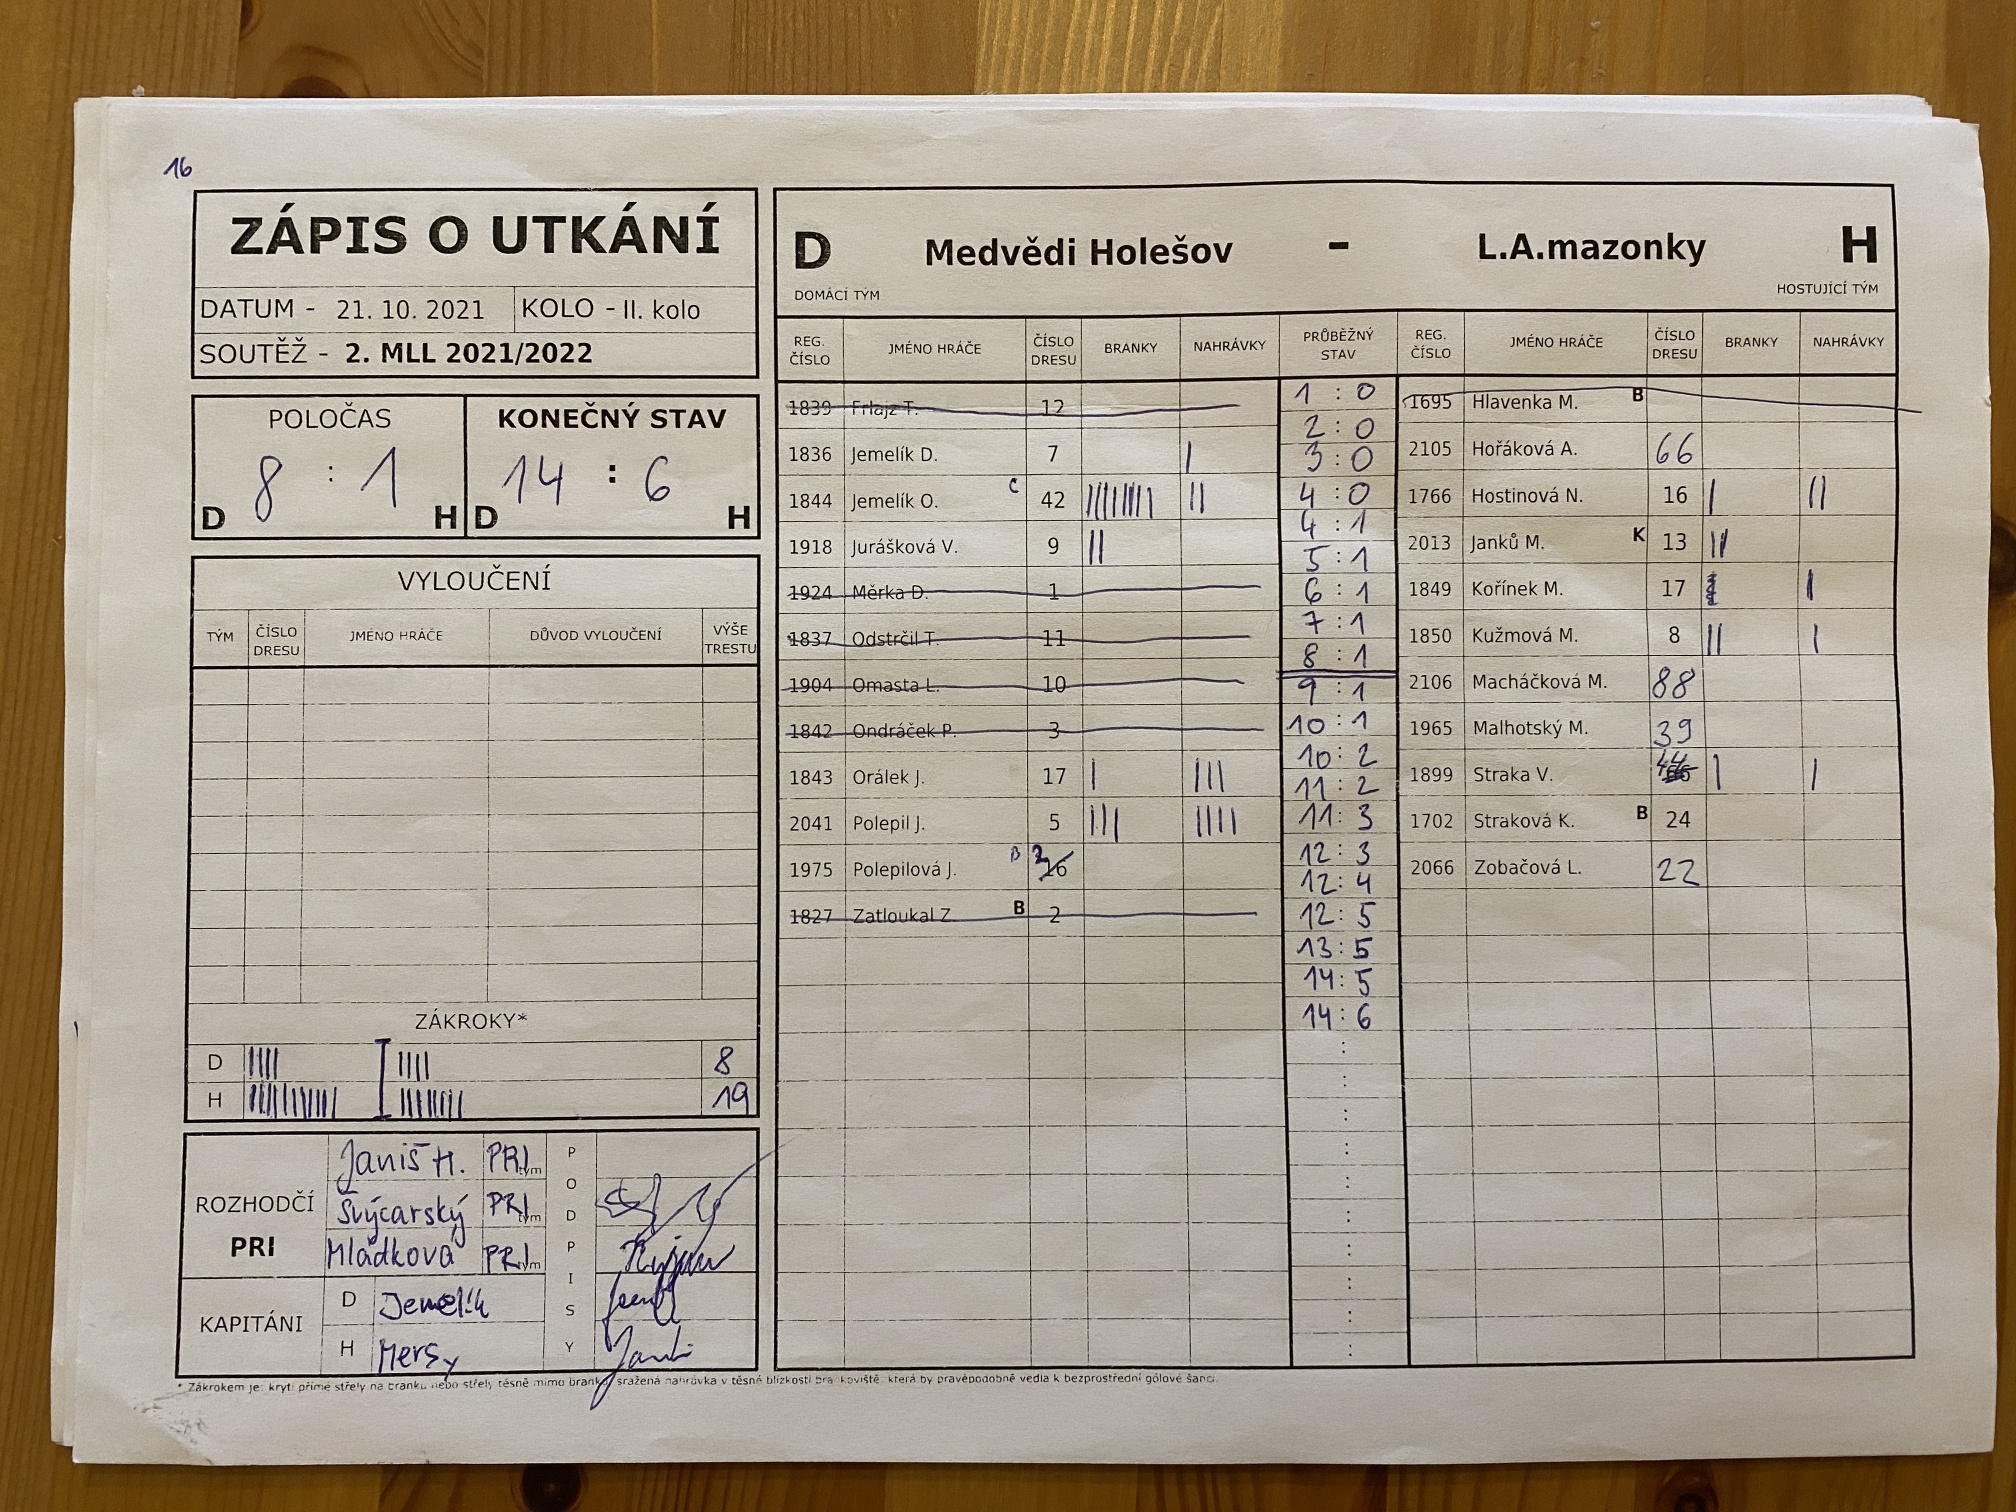 16
ZÁPIS O UTKÁNÍ
DATUM - 21. 10. 2021 KOLO - II. kolo
SOUTĚŽ - 2. MLL 2021/2022
POLOČAS KONEČNÝ STAV
8 : 1 14 : 6
D H D H
VYLOUČENÍ
TÝM ČÍSLO DRESU JMÉNO HRÁČE DŮVOD VYLOUČENÍ VÝŠE TRESTU
ZÁKROKY*
D |||| |||| 8
H 19
ROZHODČÍ
PRI
Janiš H. PRI tým
Švýcarský PRI tým
Mládková PRI tým
KAPITÁNI
D Jemelík
H Mersy
PODPISY
D Medvědi Holešov - L.A.mazonky H
DOMÁCÍ TÝM HOSTUJÍCÍ TÝM
REG. ČÍSLO JMÉNO HRÁČE ČÍSLO DRESU BRANKY NAHRÁVKY PRŮBĚŽNÝ STAV REG. ČÍSLO JMÉNO HRÁČE ČÍSLO DRESU BRANKY NAHRÁVKY
1839 Frlajz T. 12
1836 Jemelík D. 7 |
1844 Jemelík O. C 42 ||
1918 Jurášková V. 9 ||
1924 Měrka D. 1
1837 Odstrčil T. 11
1904 Omasta L. 10
1842 Ondráček P. 3
1843 Orálek J. 17 | |||
2041 Polepil J. 5 ||| ||||
1975 Polepilová J. B
1827 Zatloukal Z. B 2
1 : 0
2 : 0
3 : 0
4 : 0
4 : 1
5 : 1
6 : 1
7 : 1
8 : 1
9 : 1
10 : 1
10 : 2
11 : 2
11 : 3
12 : 3
12 : 4
12 : 5
13 : 5
14 : 5
14 : 6
1695 Hlavenka M. B
2105 Hořáková A. 66
1766 Hostinová N. 16 | ||
2013 Janků M. K 13 ||
1849 Kořínek M. 17 |
1850 Kužmová M. 8 || |
2106 Macháčková M. 88
1965 Malhotský M. 39
1899 Straka V. 44 | |
1702 Straková K. B 24
2066 Zobačová L. 22
* Zákrokem je: krytí přímé střely na branku nebo střely těsně mimo branku, sražená nahrávka v těsné blízkosti brankoviště, která by pravěpodobně vedla k bezprostřední gólové šanci.